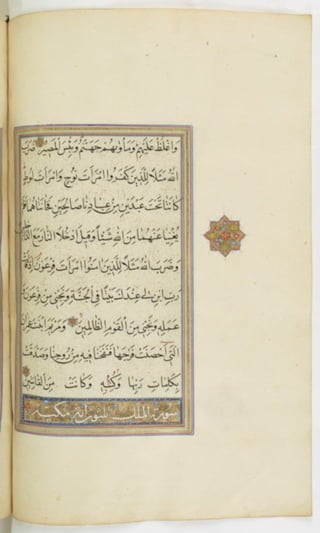 واغلظ عليهم ومأويهم جهنم وبئس المصير ضرب
الله مثلا للذين كفروا امرأت نوح وامرأت لوط
كانتا تحت عبدين من عبادنا صالحين فخانتاهما فلم
يغنيا عنهما من الله شيئا وقيل ادخلا النار مع الداخلين
وضرب الله مثلا للذين امنوا امرأت فرعون اذ قالت
رب ابن لي عندك بيتا في الجنة ونجني من فرعون و
عمله ونجني من القوم الظالمين ومريم ابنت عمران
التي احصنت فرجها فنفخنا فيه من روحنا وصدقت
بكلمات ربها وكتبه وكانت من القانتين
سورة الملك ثلثون اية مكية